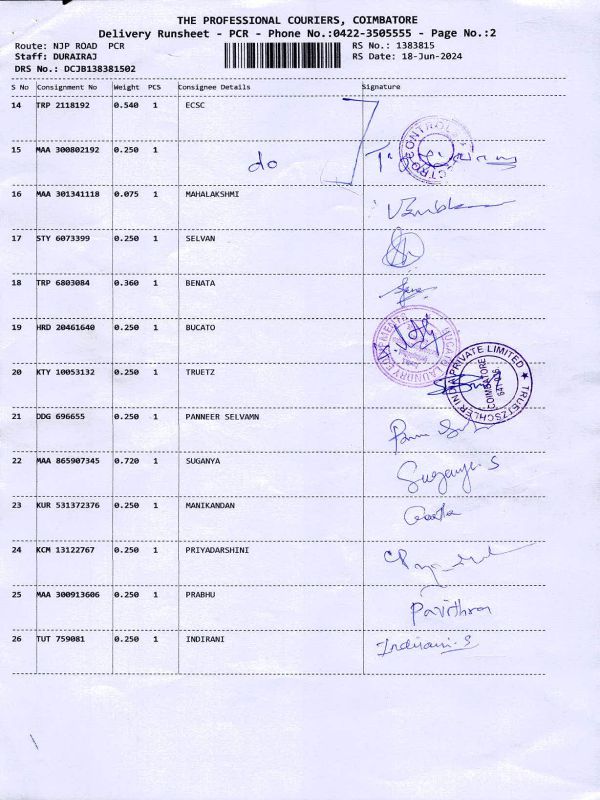 THE PROFESSIONAL COURIERS, COIMBATORE
Delivery Runsheet - PCR - Phone No.:0422-3505555 - Page No.:2
Route: NJP ROAD PCR RS No.: 1383815
Staff: DURAIRAJ RS Date: 18-Jun-2024
DRS No.: DCJB138381502
S No Consignment No Weight PCS Consignee Details Signature
14 TRP 2118192 0.540 1 ECSC
15 MAA 300802192 0.250 1 do
16 MAA 301341118 0.075 1 MAHALAKSHMI
17 STY 6073399 0.250 1 SELVAN
18 TRP 6803084 0.360 1 BENATA
19 HRD 20461640 0.250 1 BUCATO
20 KTY 10053132 0.250 1 TRUETZ
TRUETZSCHLER INDIA PRIVATE LIMITED ★
COIMBATORE
21 DDG 696655 0.250 1 PANNEER SELVAMN
22 MAA 865907345 0.720 1 SUGANYA Suganya S
23 KUR 531372376 0.250 1 MANIKANDAN
24 KCM 13122767 0.250 1 PRIYADARSHINI
25 MAA 300913606 0.250 1 PRABHU Pavithra
26 TUT 759081 0.250 1 INDIRANI Indirani. S